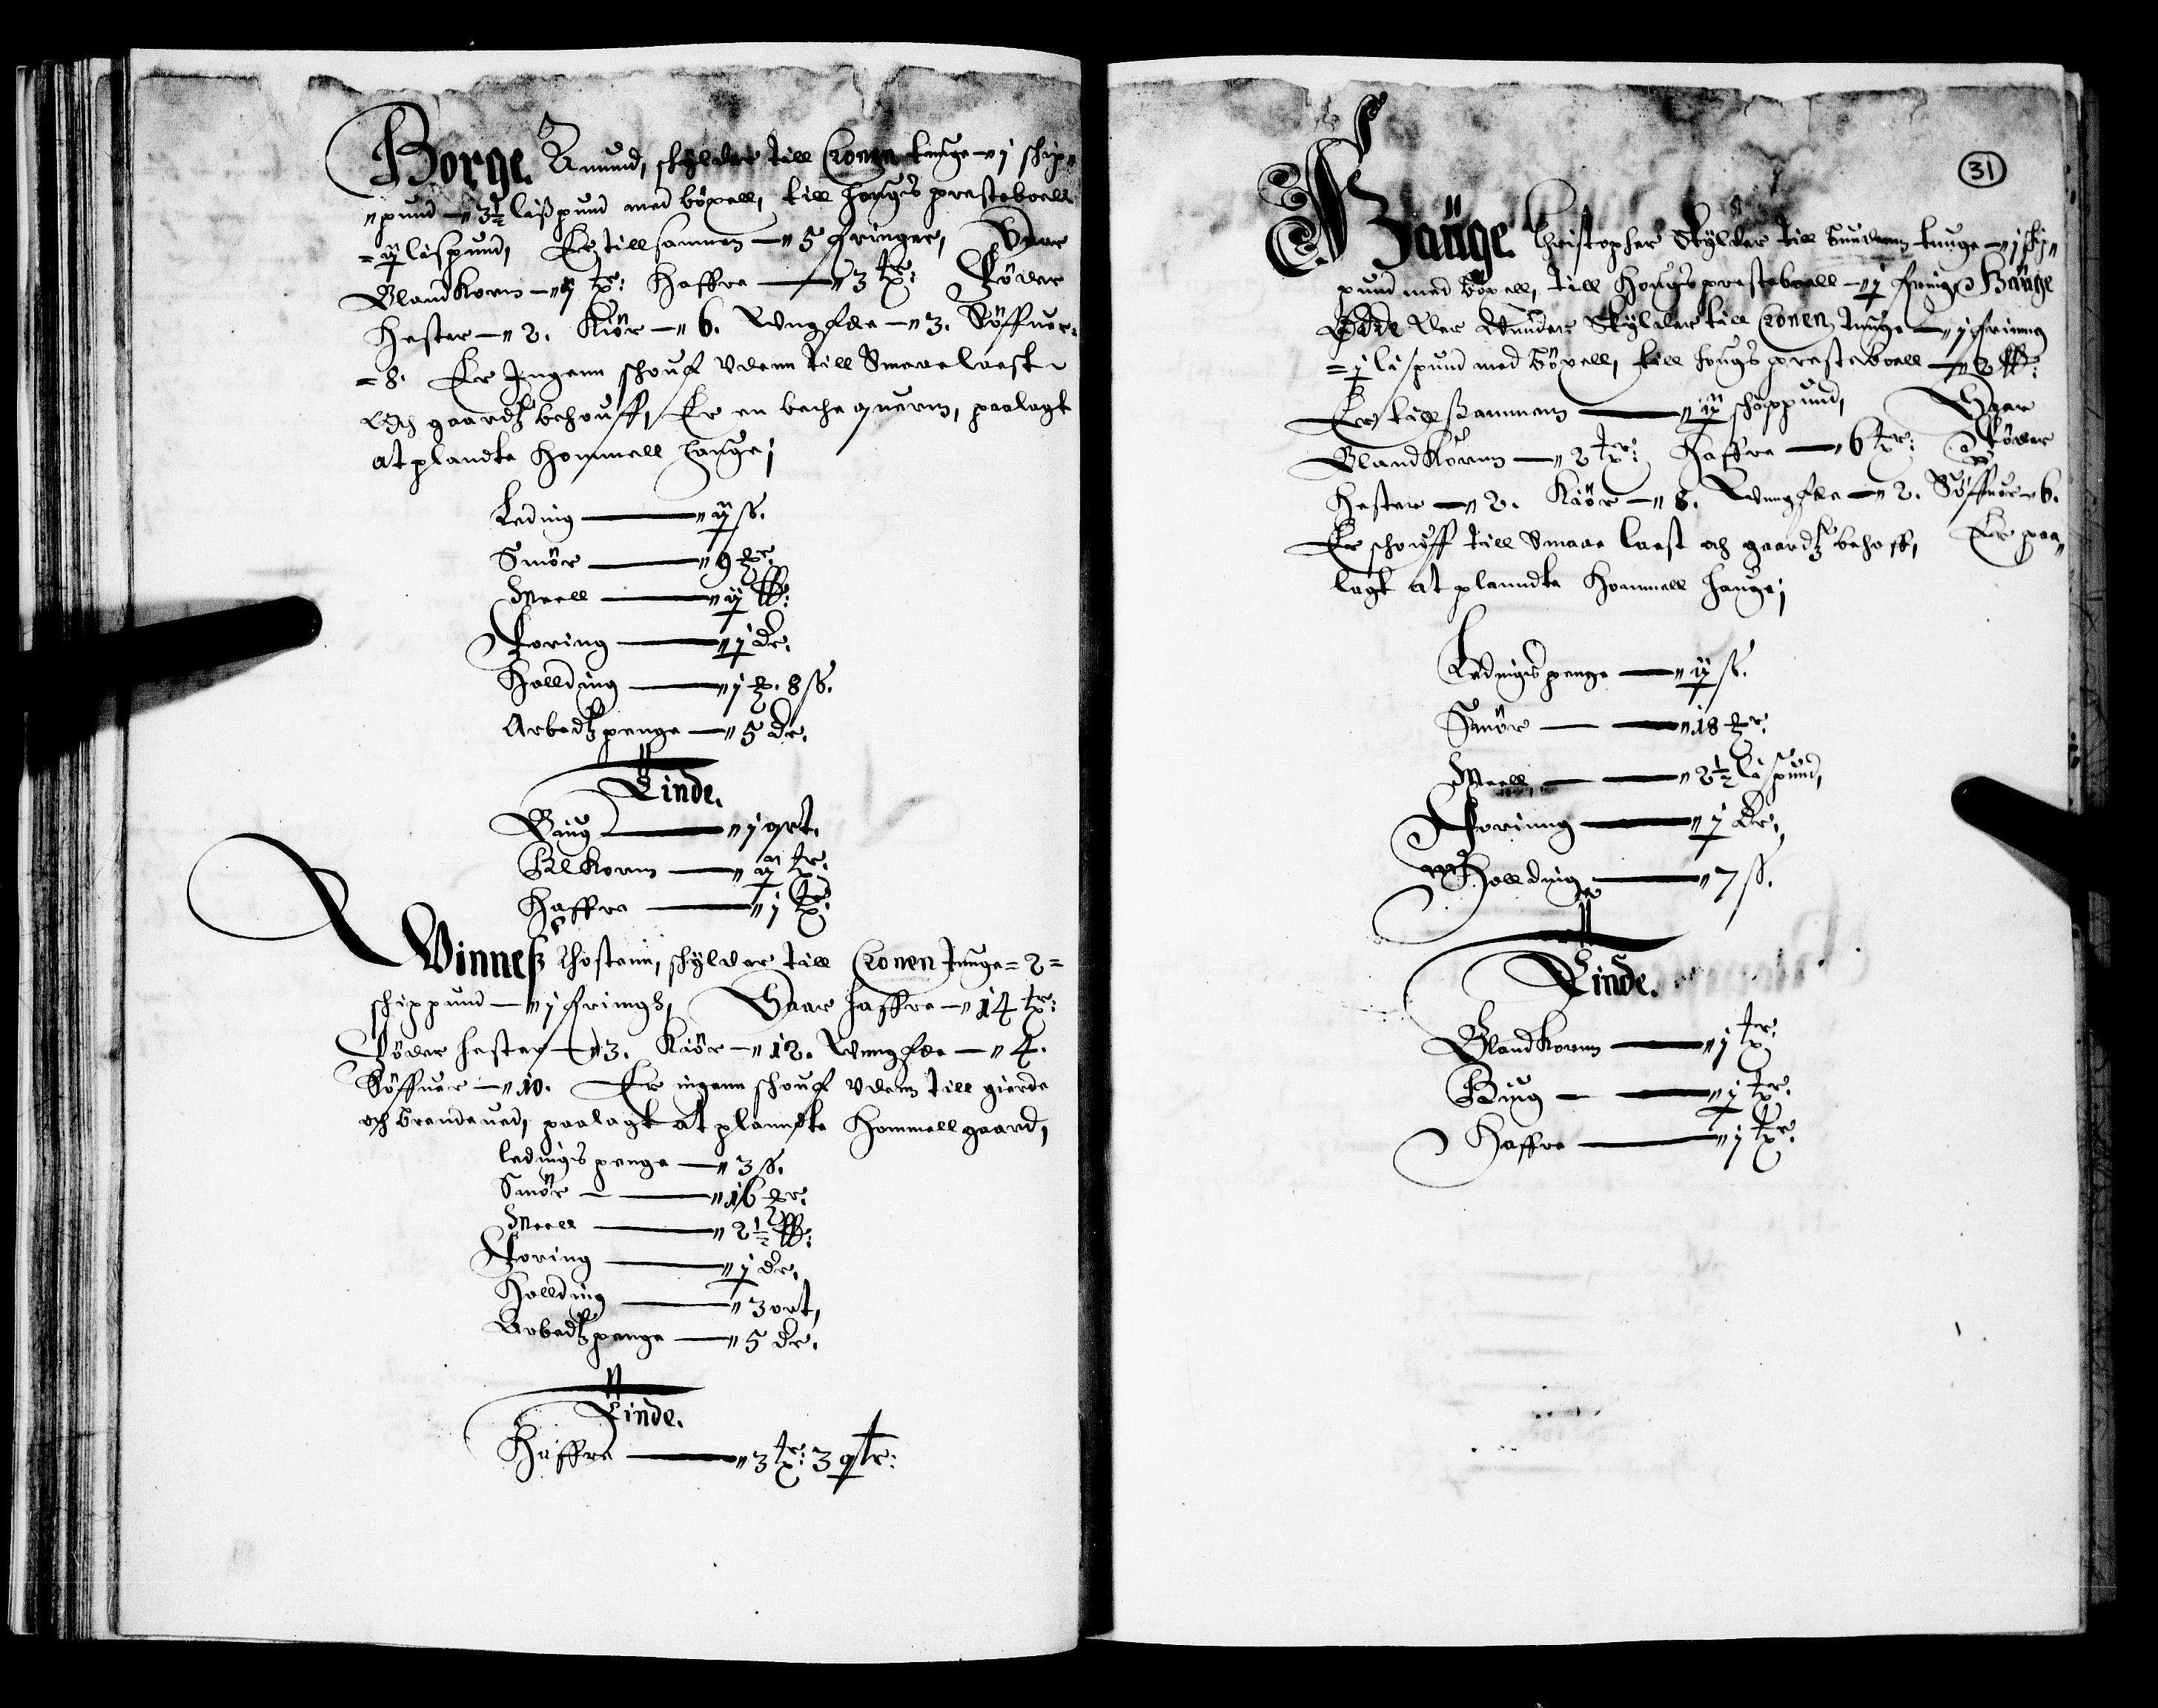 Borge. Amund, skylder till Cronen tauge — j schip„
„pund — 3½ lißpund med böxell, till Hougs presteboell
= ij lispund, Er tillsammen — 5 fringer, Saar
Blandkorn — tr: Haffre — 3 tr: Föder
Hester — 2. Kiör — 6. Vngfee — 3. Söffuer
= 8. Er Ingenn schouf vdenn till Smaae laest
och gaardtz behouff, Er en beche quernn, paalagt
at plandte Hommell Hauge;
Leding — ij ß.
Smör — 9
Meell — ij
Foring — j dr.
Hollding — j 8 ß.
Arbedtz penge — 5 dr.
Tinde.
Biug — j qrt.
Blkornn — ij tr:
Haffre — j tr:
Winneß Thostenn, skylder till Cronen tauge = 2 =
schippund — j fringr, Saar haffre — 14 tr:
Föder hester — 3. Kiör — 12. Vngfee — 4.
Söffuer — 10. Er ingenn schouf vdenn till gierde
och brendeued, paalagt at plannte Hommellgaard,
ledings penge — 3 ß.
Smör — 16
Meell — 2½
Foring — j dr.
Hollding — 3 ort,
Arbedtz penge — 5 dr.
Tinde.
Haffre — 3 tr: 3 qtr:
31
Hauge. Christopher Skylder till tauge — j ski„
pund med böxell, till Hougs presteboell — j fringe Hauge
Øde der Vnder Skylder till Cronen tauge — j fring
= j lispund med böxell, till Hougs presteboell — 2
Er till ßammenn — ij schippund, Saar
Blandkornn — 2 tr: Haffre — 6 tr: Föder
Hester — 2. Kiör — 8. Vngfee — 2. Söffuer — 6.
Er schouff till Smaae laest och gaardtz behoff, Er paa„
lagt at planndte Hommell Hauge;
Ledings penge — ij ß.
Smör — 18
Meell — 2½ lispund,
Foring — j dr.
Hollding — 7 ß.
Tinde.
Blandkornn — j tr:
Biug — j tr:
Haffre — j tr: